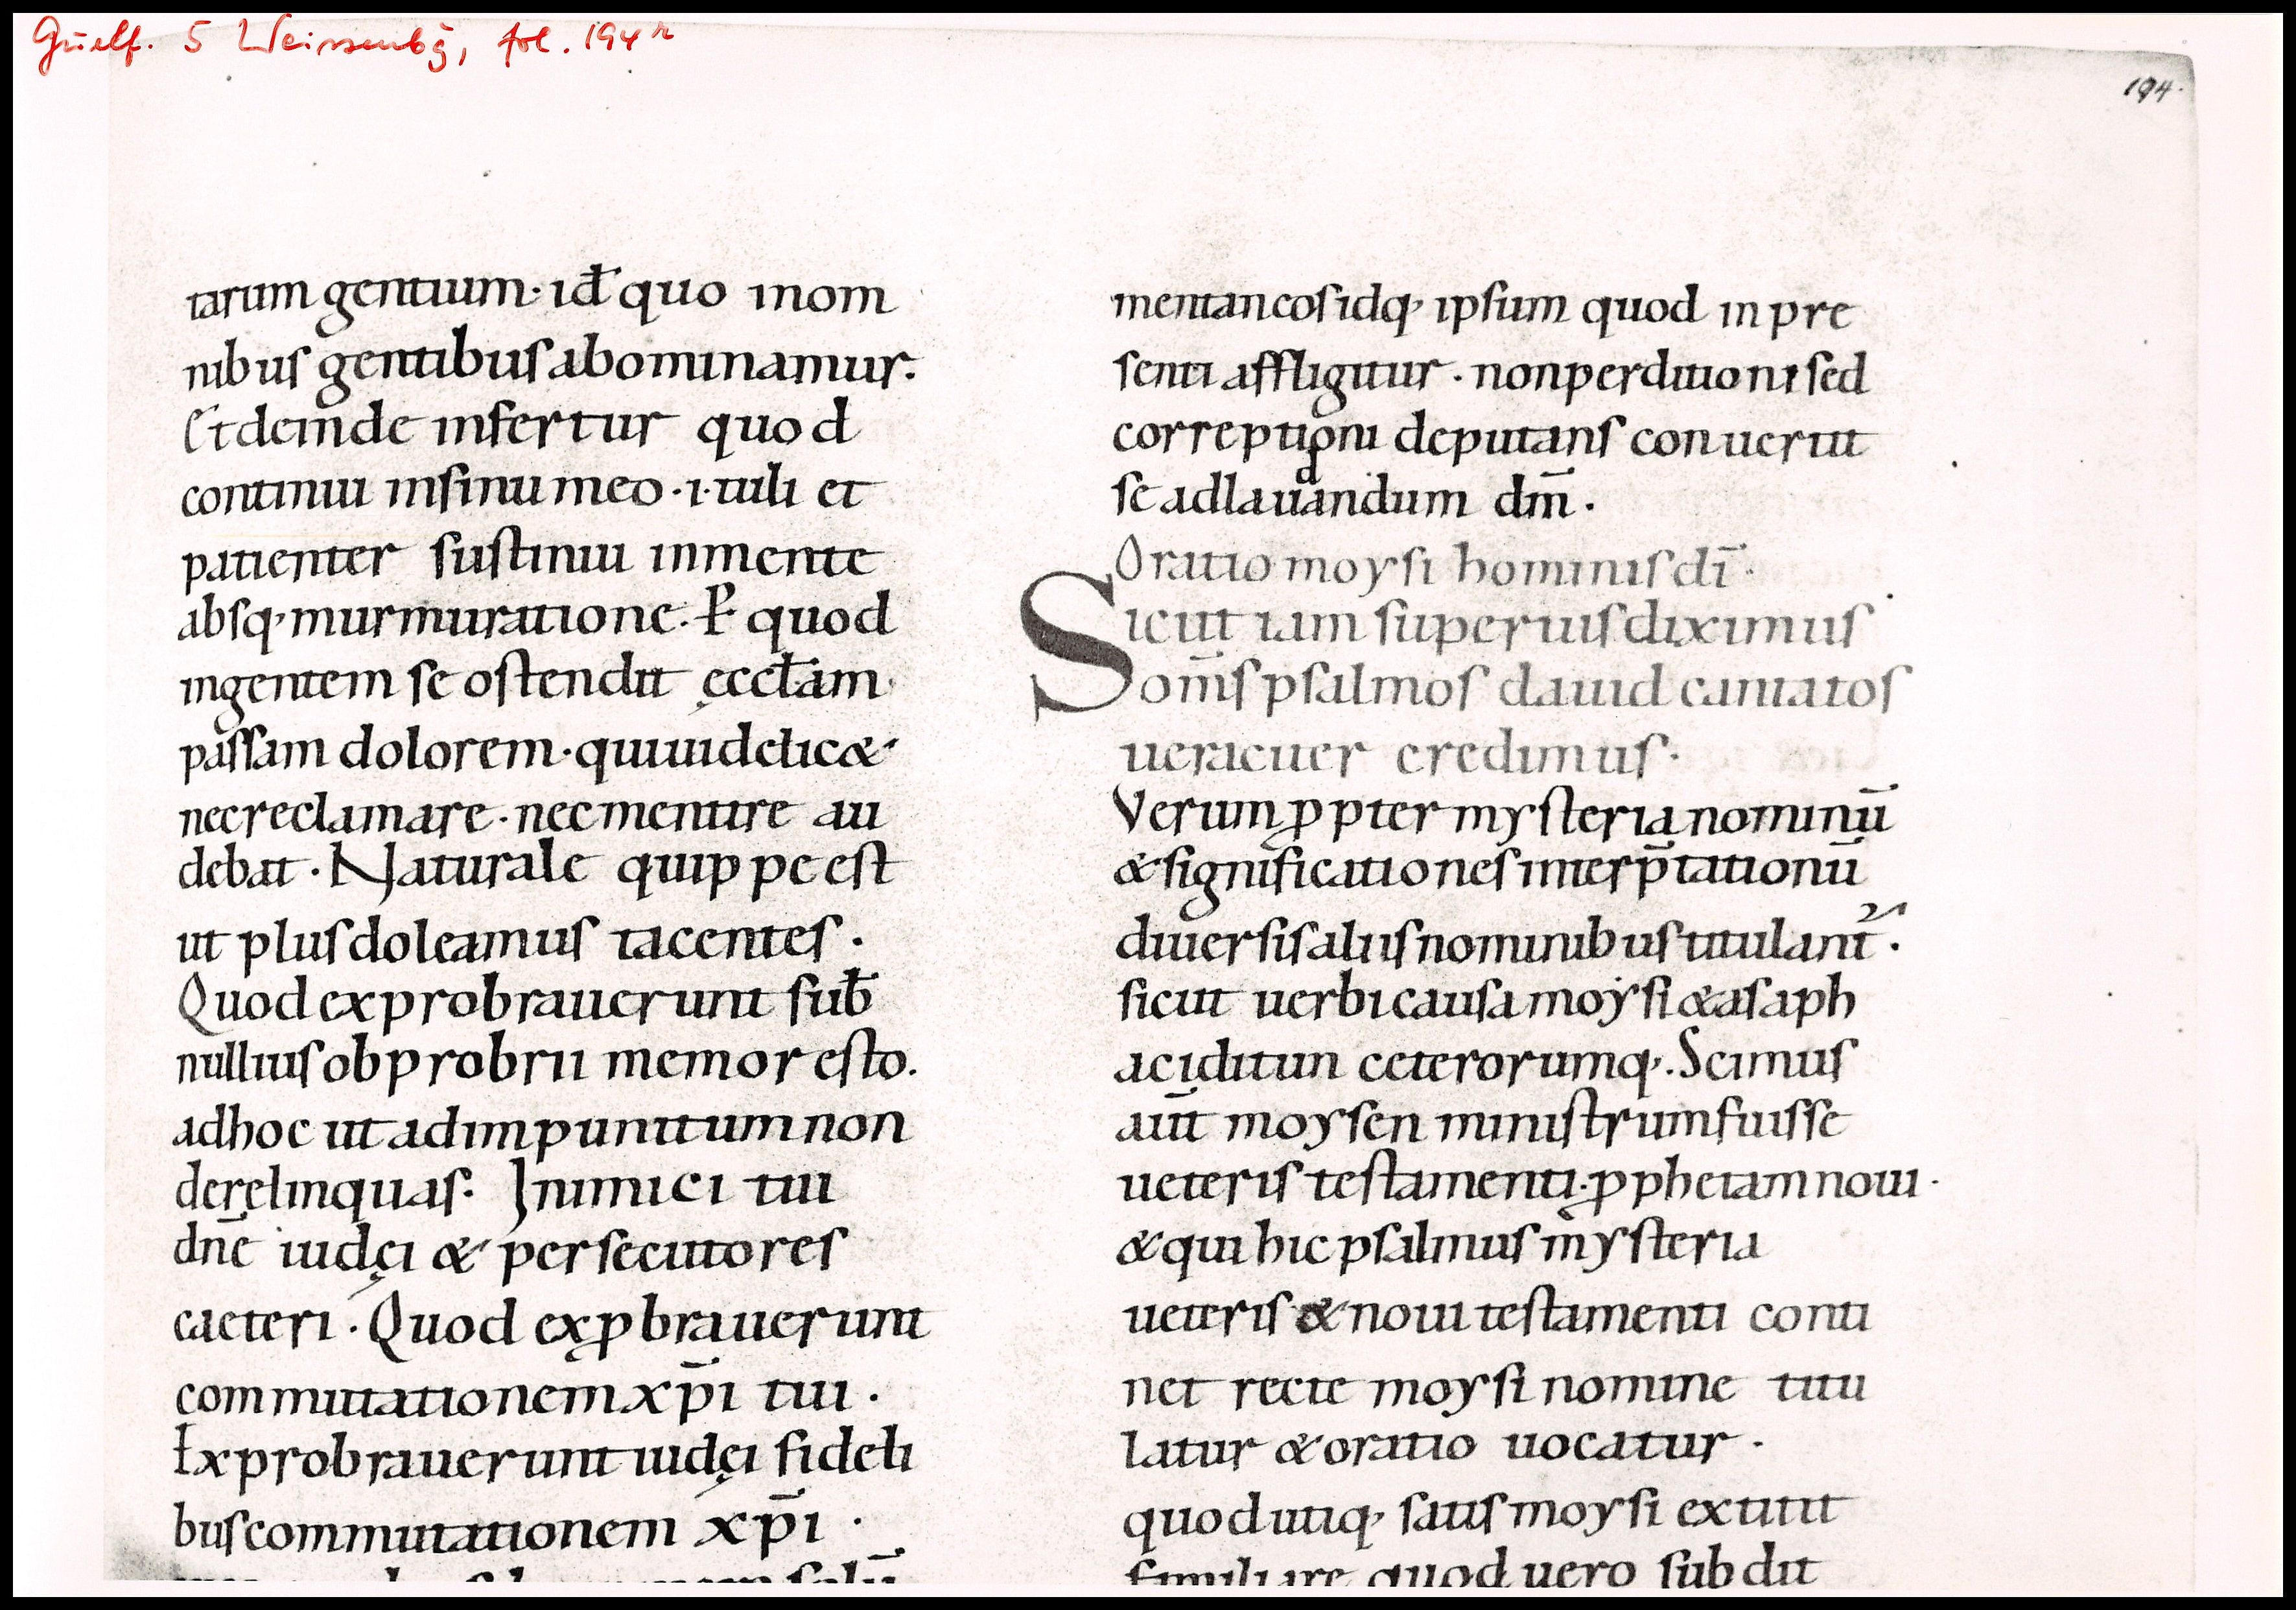 Guelf. 5 Weissenbg, fol. 194r
194.
tarum gentium· id̄ quo inom
nibus gentibus abominamur.
Et deinde infertur quod
continui insinu meo ·i· tuli et
patienter sustinui inmente
absq· murmuratione. P̄ quod
ingentem se ostendit ęccl̄am
passam dolorem· quiuidelic&
nec reclamare· nec mentire au
debat· Naturale quippe est
ut plus doleamus tacentes·
Quod exprobrauerunt sub̄
nullius obprobrii memor esto.
adhoc ut ad impunitum non
derelinquas. Inimici tui
dn̄e iudęi & persecutores
caeteri· Quod exꝓbrauerunt
commutationem xp̄i tui·
Exprobrauerunt iudęi fideli
bus commutationem xp̄i ·
mentaneos idq· ipsum quod inpre
senti affligitur· non perditioni sed
correptioni deputans conuertit
se ad laudandum dm̄·
Oratio moysi hominis dī·
Sicut iam superius diximus
om̄s psalmos dauid cantatos
ueraciter credimus·
Verum ꝓpter mysteria nominū
& significationes interp̄tationū
diuersis aliis nominibus titulant᷑·
sicut uerbi causa moysi & asaph
ac iditun ceterorumq·. Scimus
aūt moysen ministrum fuisse
ueteris testamenti· ꝓphetam noui·
& qui hic psalmus mysteria
ueteris & noui testamenti conti
net recte moysi nomine titu
latur & oratio uocatur·
quod utiq· satis moysi extitit
familiare quod uero subdit